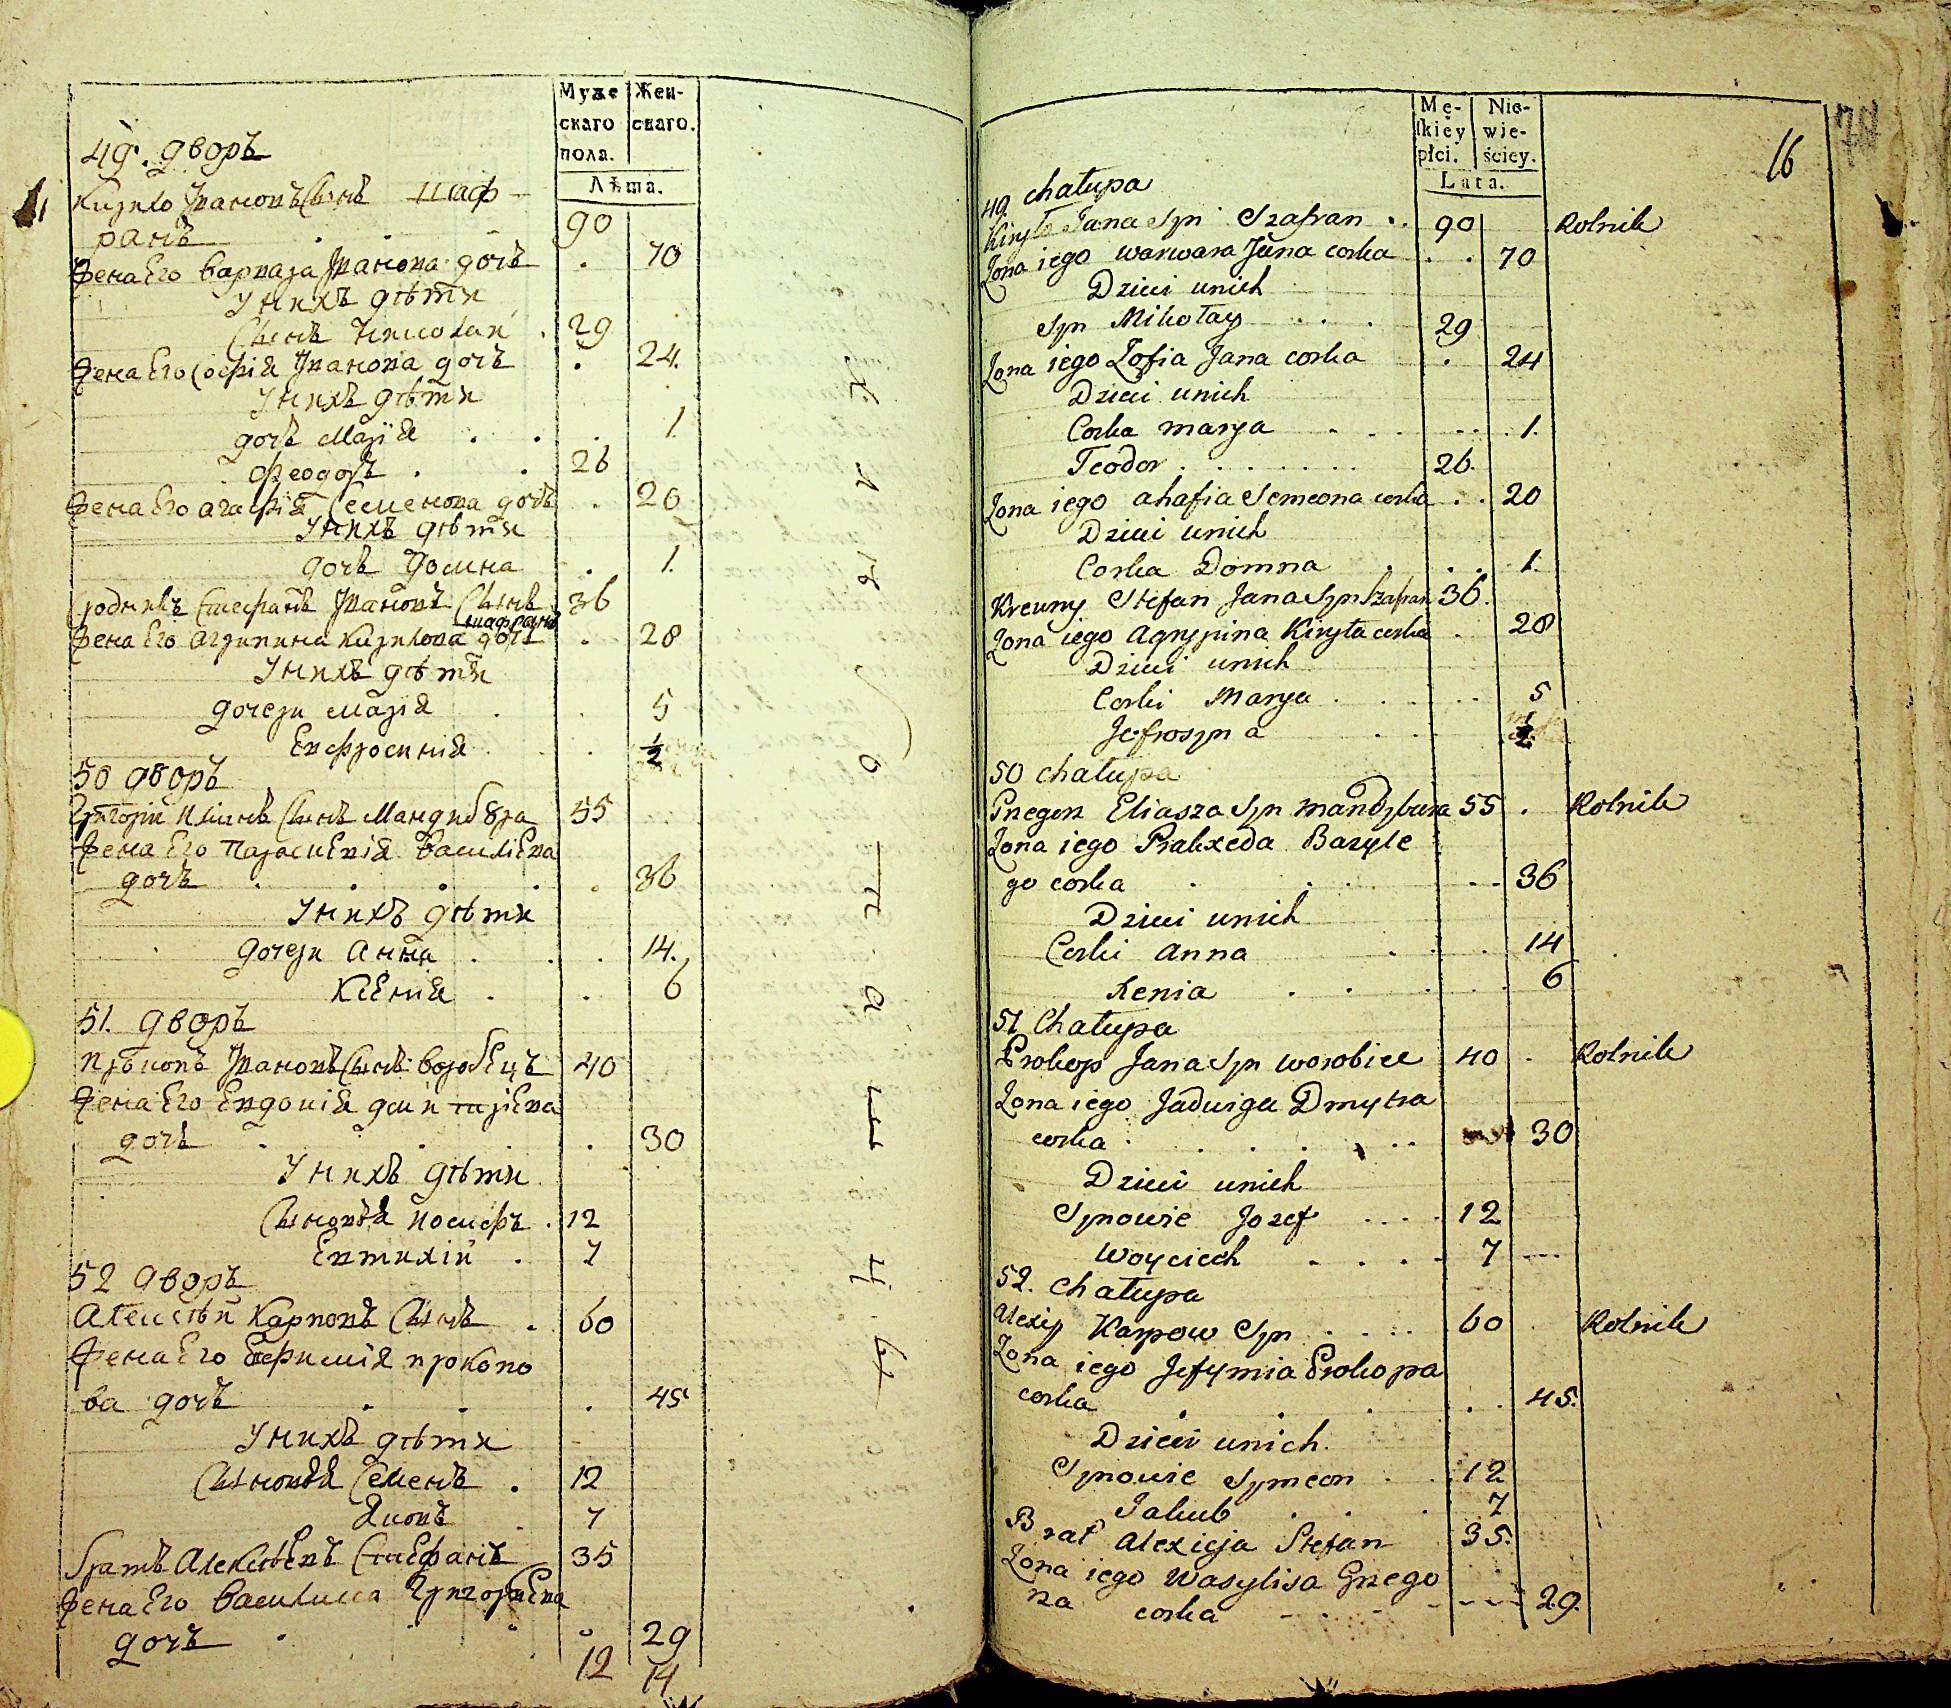 Муже
скаго
пола.
Жен-
скаго.
Лѣта.
49. дворъ
Кирило Ивановъ Сынъ Шаф-
ранъ 90
Жена Его Варвара Иванова дочь 70
У нихъ дѣти
Сынъ Николай 29
Жена Его Софія Иванова дочь 24.
У нихъ дѣти
дочь Марія 1.
Феодоръ 26
Жена Его Агафія Семенова дочь 20
У нихъ дѣти
дочь Домна 1.
Сродникъ Стефанъ Ивановъ Сынъ 36
Шафранъ
Жена Его Агрипина Кирилова дочь 28
У нихъ дѣти
дочери Марія 5
Евфросинія 1/2
50 дворъ
Григорій Ильинъ Сынъ Мандибура 55
Жена Его Параскевія Василіева
дочь 36
У нихъ дѣти
дочери Анна 14.
Ксенія 6
51. дворъ
Прокопъ Ивановъ Сынъ Воробецъ 40
Жена Его Евдокія Дмитріева
дочь 30
У нихъ дѣти
Сыновья Иосифъ 12
Евтихій 7
52 дворъ
Алексѣй Карповъ Сынъ 60
Жена Его Ефимія Прокопо
ва дочь 45
У нихъ дѣти
Сыновья Семенъ 12
Яковъ 7
братъ Алексѣевъ Стефанъ 35
Жена Его Василиса Григорьева
дочь 29
12 14
Mę-
skiey
płci.
Nie-
wie-
ściey.
Lata.
16
49. Chałupa
Kiryło Jana Syn Szafran 90 Rolnik
Zona iego Warwara Jana corka 70
Dzieci unich
Syn Mikołay 29
Zona iego Zofia Jana corka 24
Dzieci unich
Corka Marya 1.
Teodor 26.
Zona iego Ahafia Semeona corka 20
Dzieci unich
Corka Domna 1.
Krewny Stefan Jana Syn Szafran 36.
Zona iego Agrypina Kiryła corka 28
Dzieci unich
Corki Marya 5
Jefrosyna 1/2
50 Chałupa
Gregorz Eliasza Syn Mandybura 55 Rolnik
Zona iego Praxeda Bazyle
go corka 36
Dzieci unich
Corki Anna 14
Xenia 6
51 Chałupa
Prokop Jana Syn Worobiec 40 Rolnik
Zona iego Jadwiga Dmytra
corka 30
Dzieci unich
Synowie Jozef 12
Woyciech 7
52. Chałupa
Alexiy Karpow Syn 60 Rolnik
Zona iego Jefymia Prokopa
corka 45.
Dzieci unich.
Synowie Symeon 12
Jakub 7
Brat Alexieja Stefan 35.
Zona iego Wasylisa Grzego
rza corka 29.